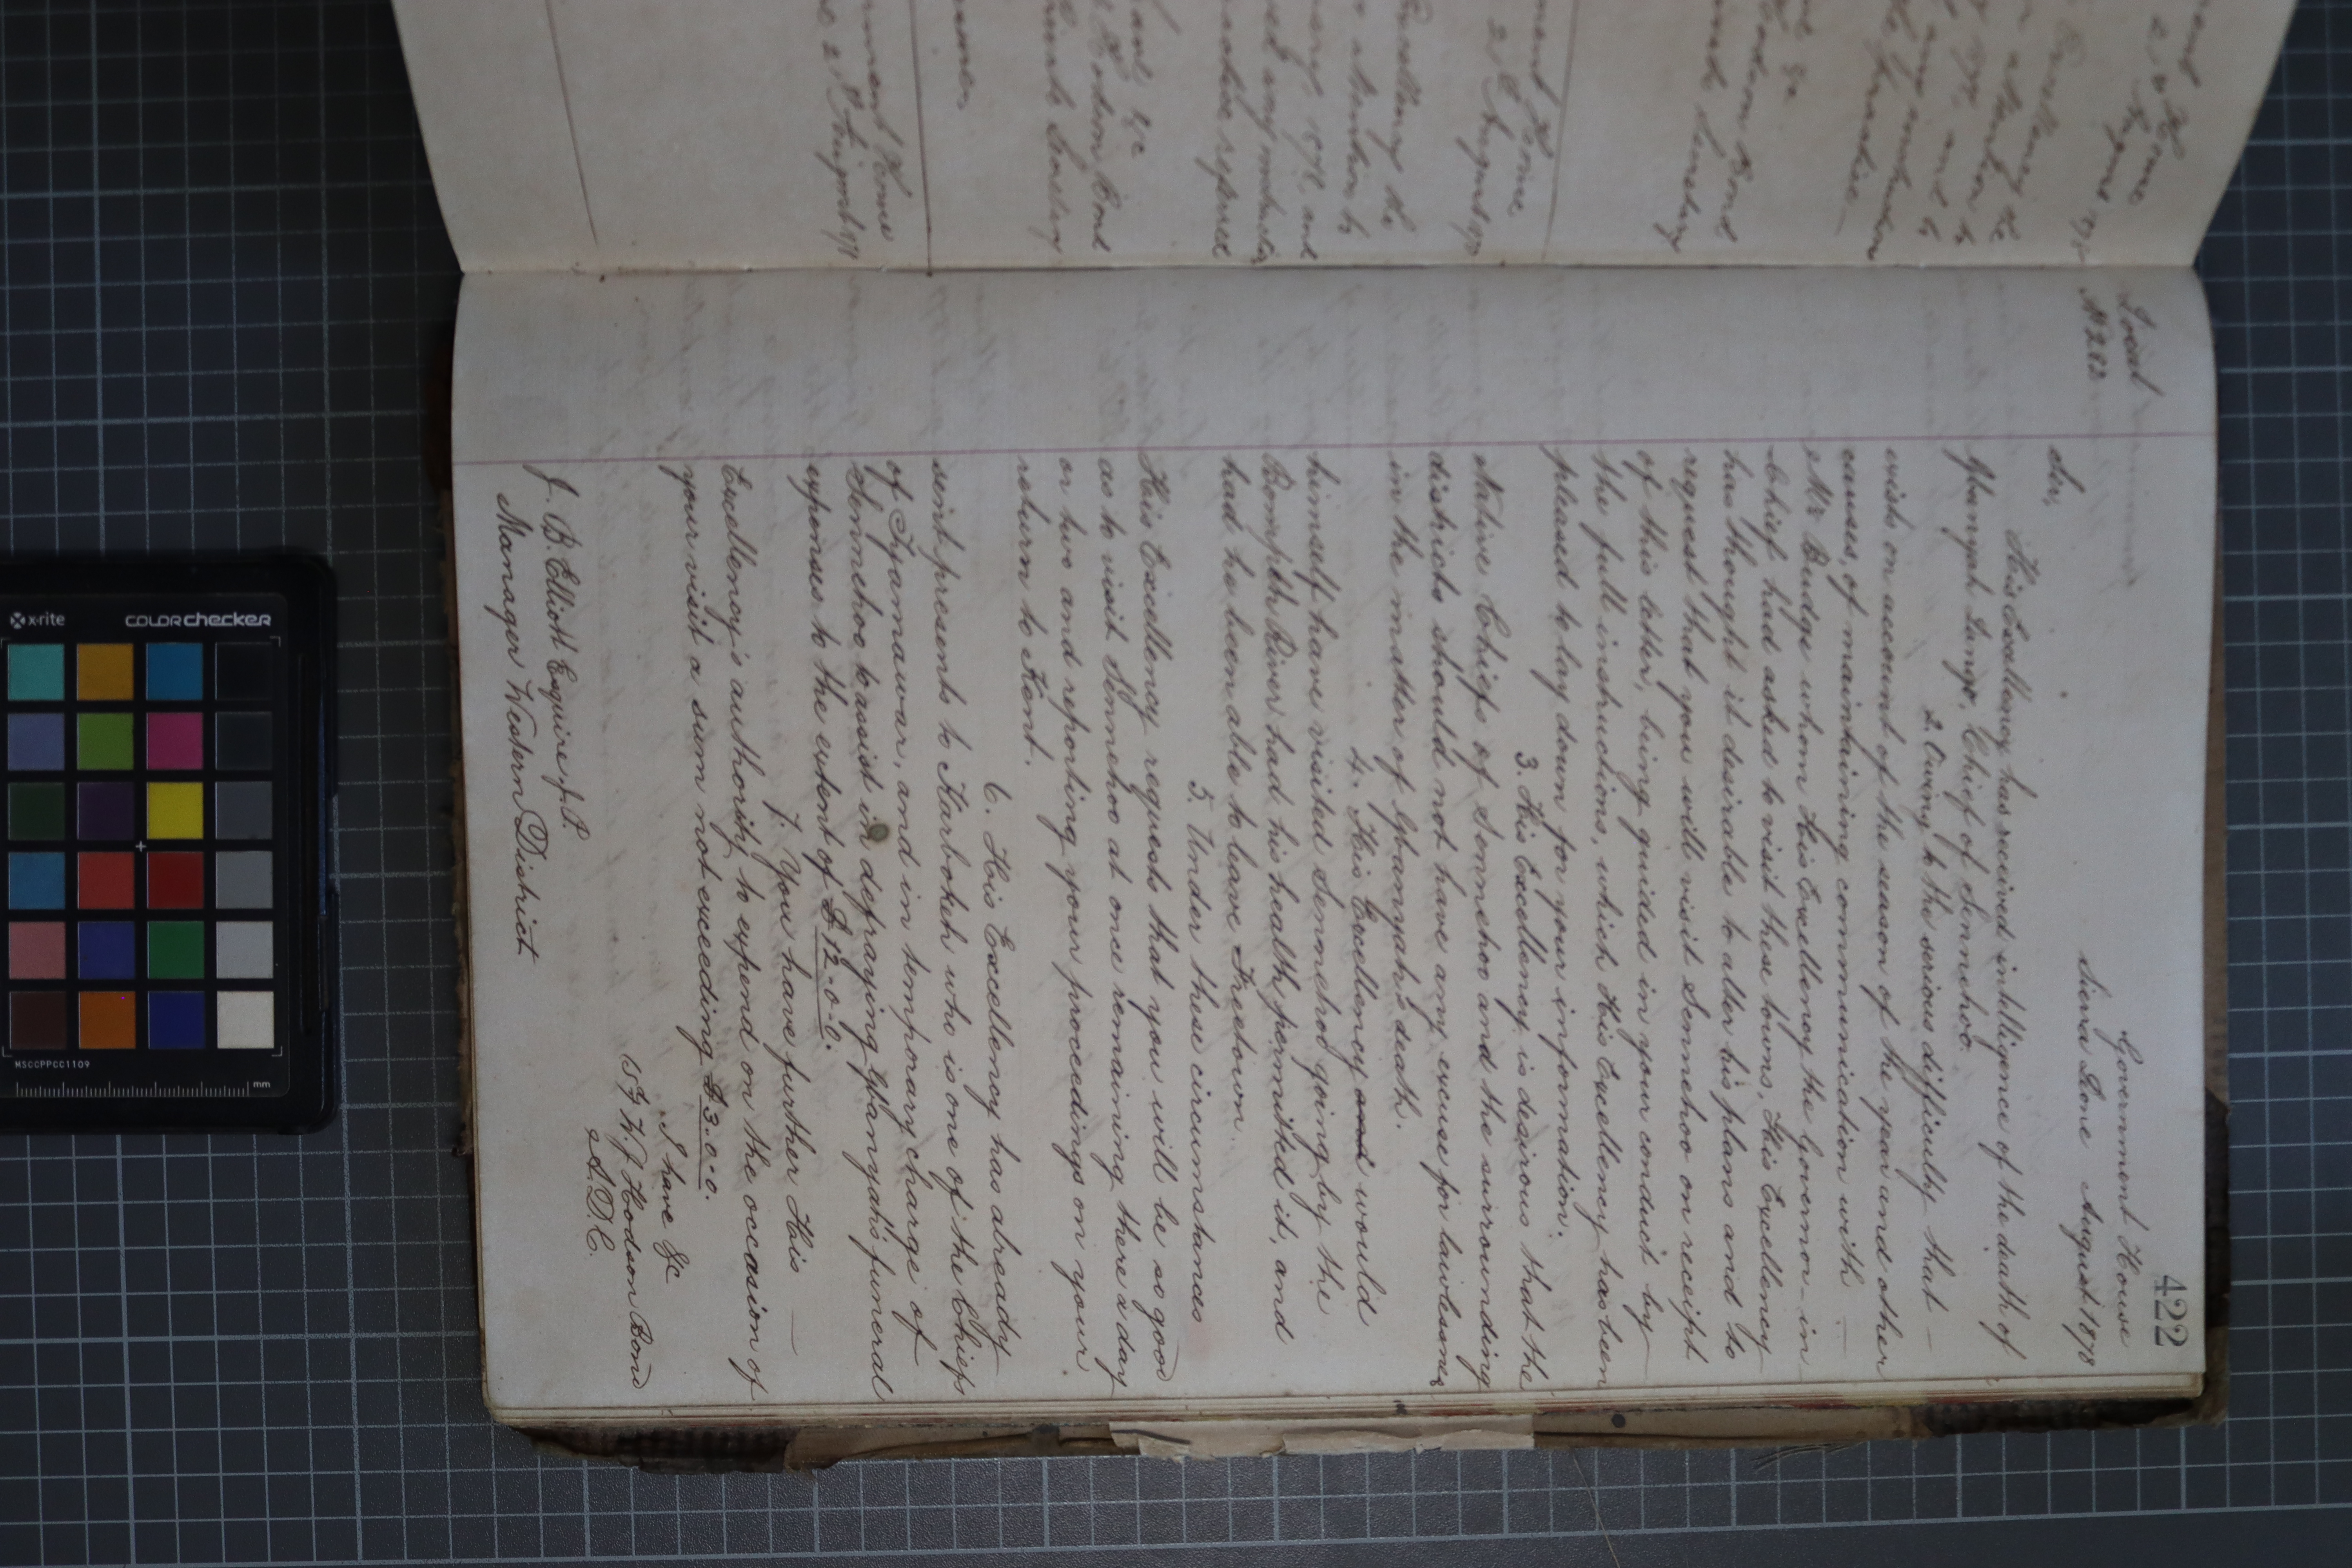 422
Government House
Sierra Leone August 1878
Local
No 202
Sir,
His Excellency has received intelligence of the death of
Gbanyah Lango, Chief of Sennehoo.
2. Owing to the serious difficulty that —
exists on account of the season of the year and other
causes, of maintaining communication with —
Mr Budge whom His Excellency the Governor-in-
Chief had asked to visit these towns, His Excellency
has thought it desirable to alter his plans and to
request that you will visit Sennehoo on receipt
of this letter, being guided in your conduct by
the full instructions, which His Excellency has been
pleased to lay down for your information.
3. His Excellency is desirous that the
Native Chiefs of Sennehoo and the surrounding
districts should not have any excuse for lawlessness
in the matter of Gbanyah's death.
4. His Excellency and would
himself have visited Sennehoo going by the
Bompeh River had his health permitted it, and
had he been able to leave Freetown.
5. Under these circumstances
His Excellency requests that you will be so good
as to visit Sennehoo at once remaining there a day
or two and reporting your proceedings on your
return to Kent.
6. His Excellency has already
sent presents to Karbokeh who is one of the Chiefs
of Tyamawar, and in temporary charge of
Sennehoo, to assist in defraying Gbanyah's funeral
expenses to the extent of £12-0-0.
7. You have further His —
Excellency's authority to expend on the occasion of
your visit a sum not exceeding £3-0-0.
I have &c
W. J. Hodson Bond
A.D.C.
J. B. Elliott Esquire J.P.
Manager Western District
x-rite
colorchecker
MSCCPPCC1109
mm